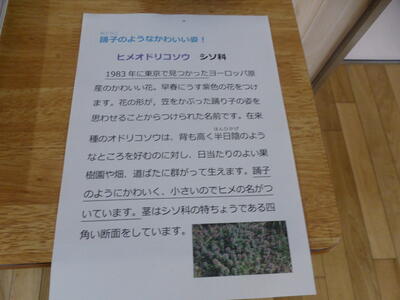 踊子のようなかわいい姿！
ヒメオドリコソウ　シソ科
1983年に東京で見つかったヨーロッパ原
産のかわいい花。早春にうす紫色の花をつけ
ます。花の形が，笠をかぶった踊り子の姿を
思わせることからつけられた名前です。在来
種のオドリコソウは、背も高く半日陰のよう
なところを好むのに対し、日当たりのよい果
樹園や畑、道ばたに群がって生えます。踊子
のようにかわいく、小さいのでヒメの名がつ
いています。茎はシソ科の特ちょうである四
角い断面をしています。